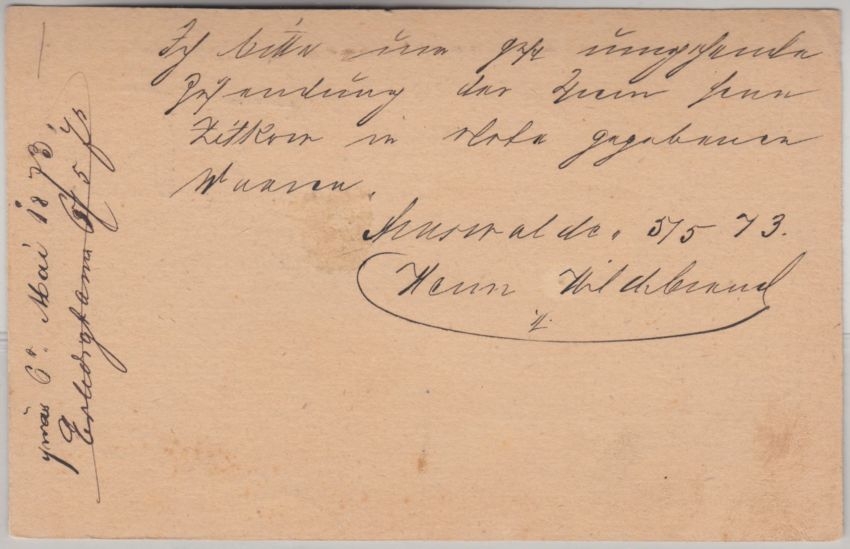 Ich bitte um gefl umgehende
Zusendung der Ihrem Herrn
Zittkow in Nota gegebenen
Waaren.
Arnswalde. 5/5 73.
Herm Hildebrand
präs 6t. Mai 1873
5/73